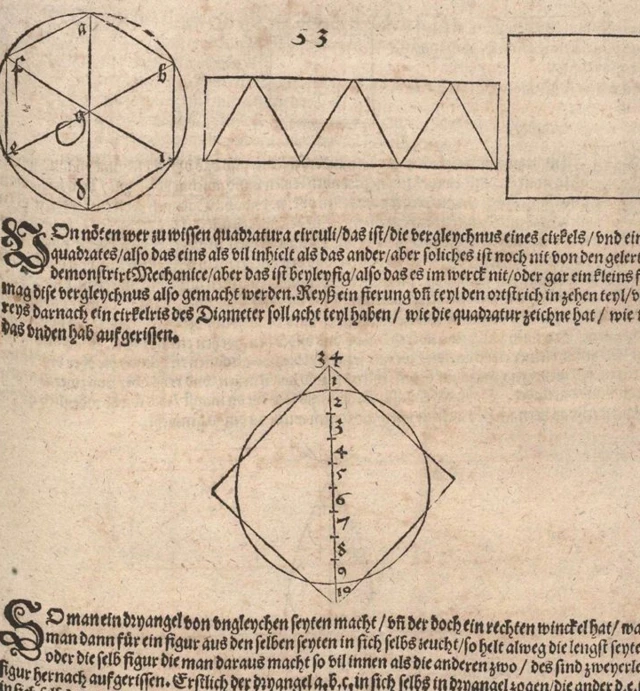 33
a
b
f
g
e
i
d
VOn nöten wer zu wissen quadratura circuli/das ist/die vergleychnus eines cirkels/vnd ein
quadrates/also das eins als vil inhielt als das ander/aber soliches ist noch nit von den gelert
demonstrirt Mechanice/aber das ist beyleyfig/also das es im werck nit/oder gar ein kleins f
mag dise vergleychnus also gemacht werden. Reyß ein fierung vñ teyl den ortstrich in zehen teyl/v
reys darnach ein cirkelris des Diameter soll acht teyl haben/wie die quadratur zeichne hat/wie
das vnden hab aufgerissen.
34
1
2
3
4
5
6
7
8
9
10
SO man ein dryangel von vngleychen seyten macht/vñ der doch ein rechten winckel hat/wa
man dann für ein figur aus den selben seyten in sich selbs zeucht/so helt alweg die lengst seyte
oder die selb figur die man daraus macht so vil innen als die anderen zwo/des sind zweyerle
figur hernach aufgerissen. Erstlich der dryangel a.b.c. in sich selbs in dryangel zogen/die ander d.e.